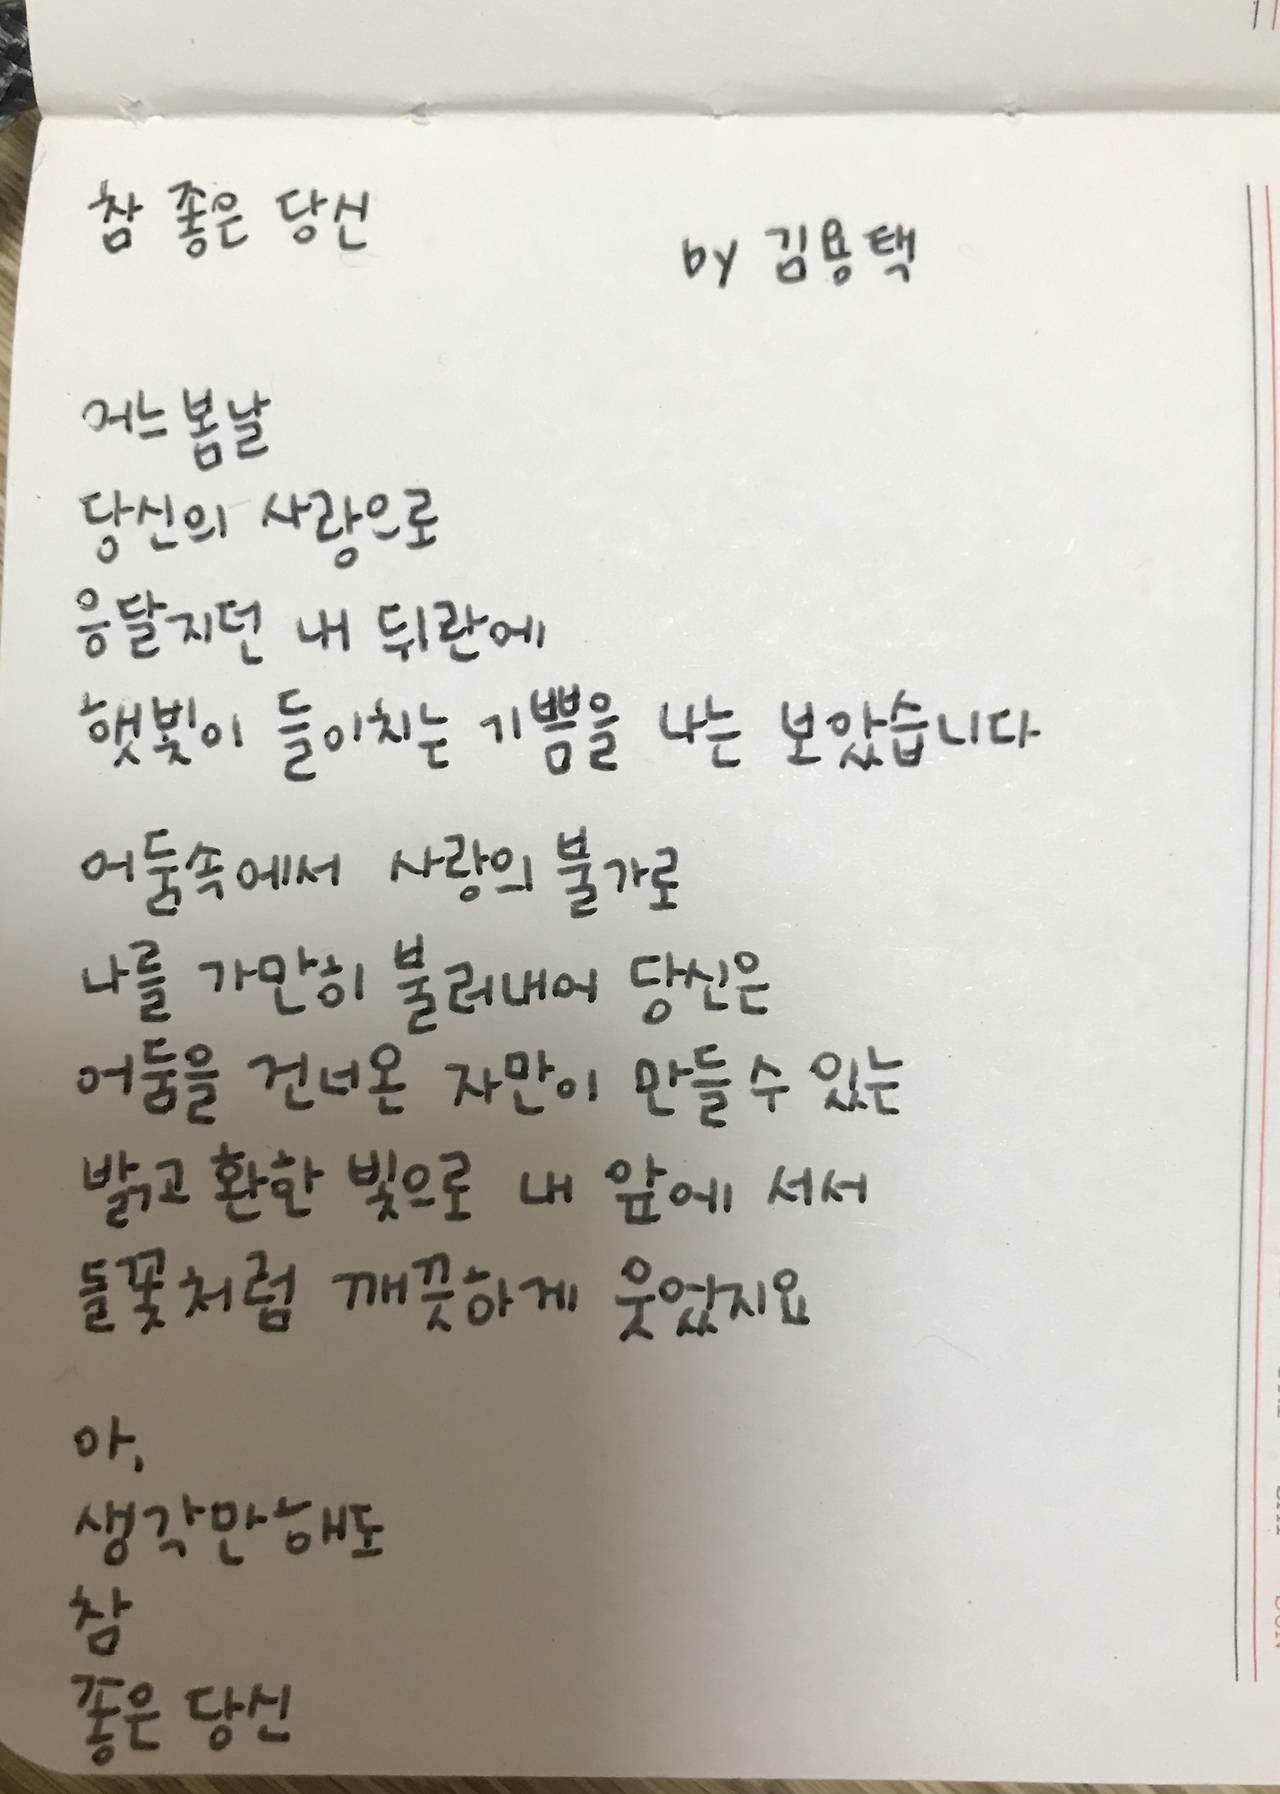 참 좋은 당신
by 김용택
어느봄날
당신의 사랑으로
응달지던 내 뒤란에
햇빛이 들이치는 기쁨을 나는 보았습니다
어둠속에서 사랑의 불가로
나를 가만히 불러내어 당신은
어둠을 건너온 자만이 만들수 있는
밝고 환한 빛으로 내 앞에 서서
들꽃처럼 깨끗하게 웃었지요
아,
생각만해도
참
좋은 당신